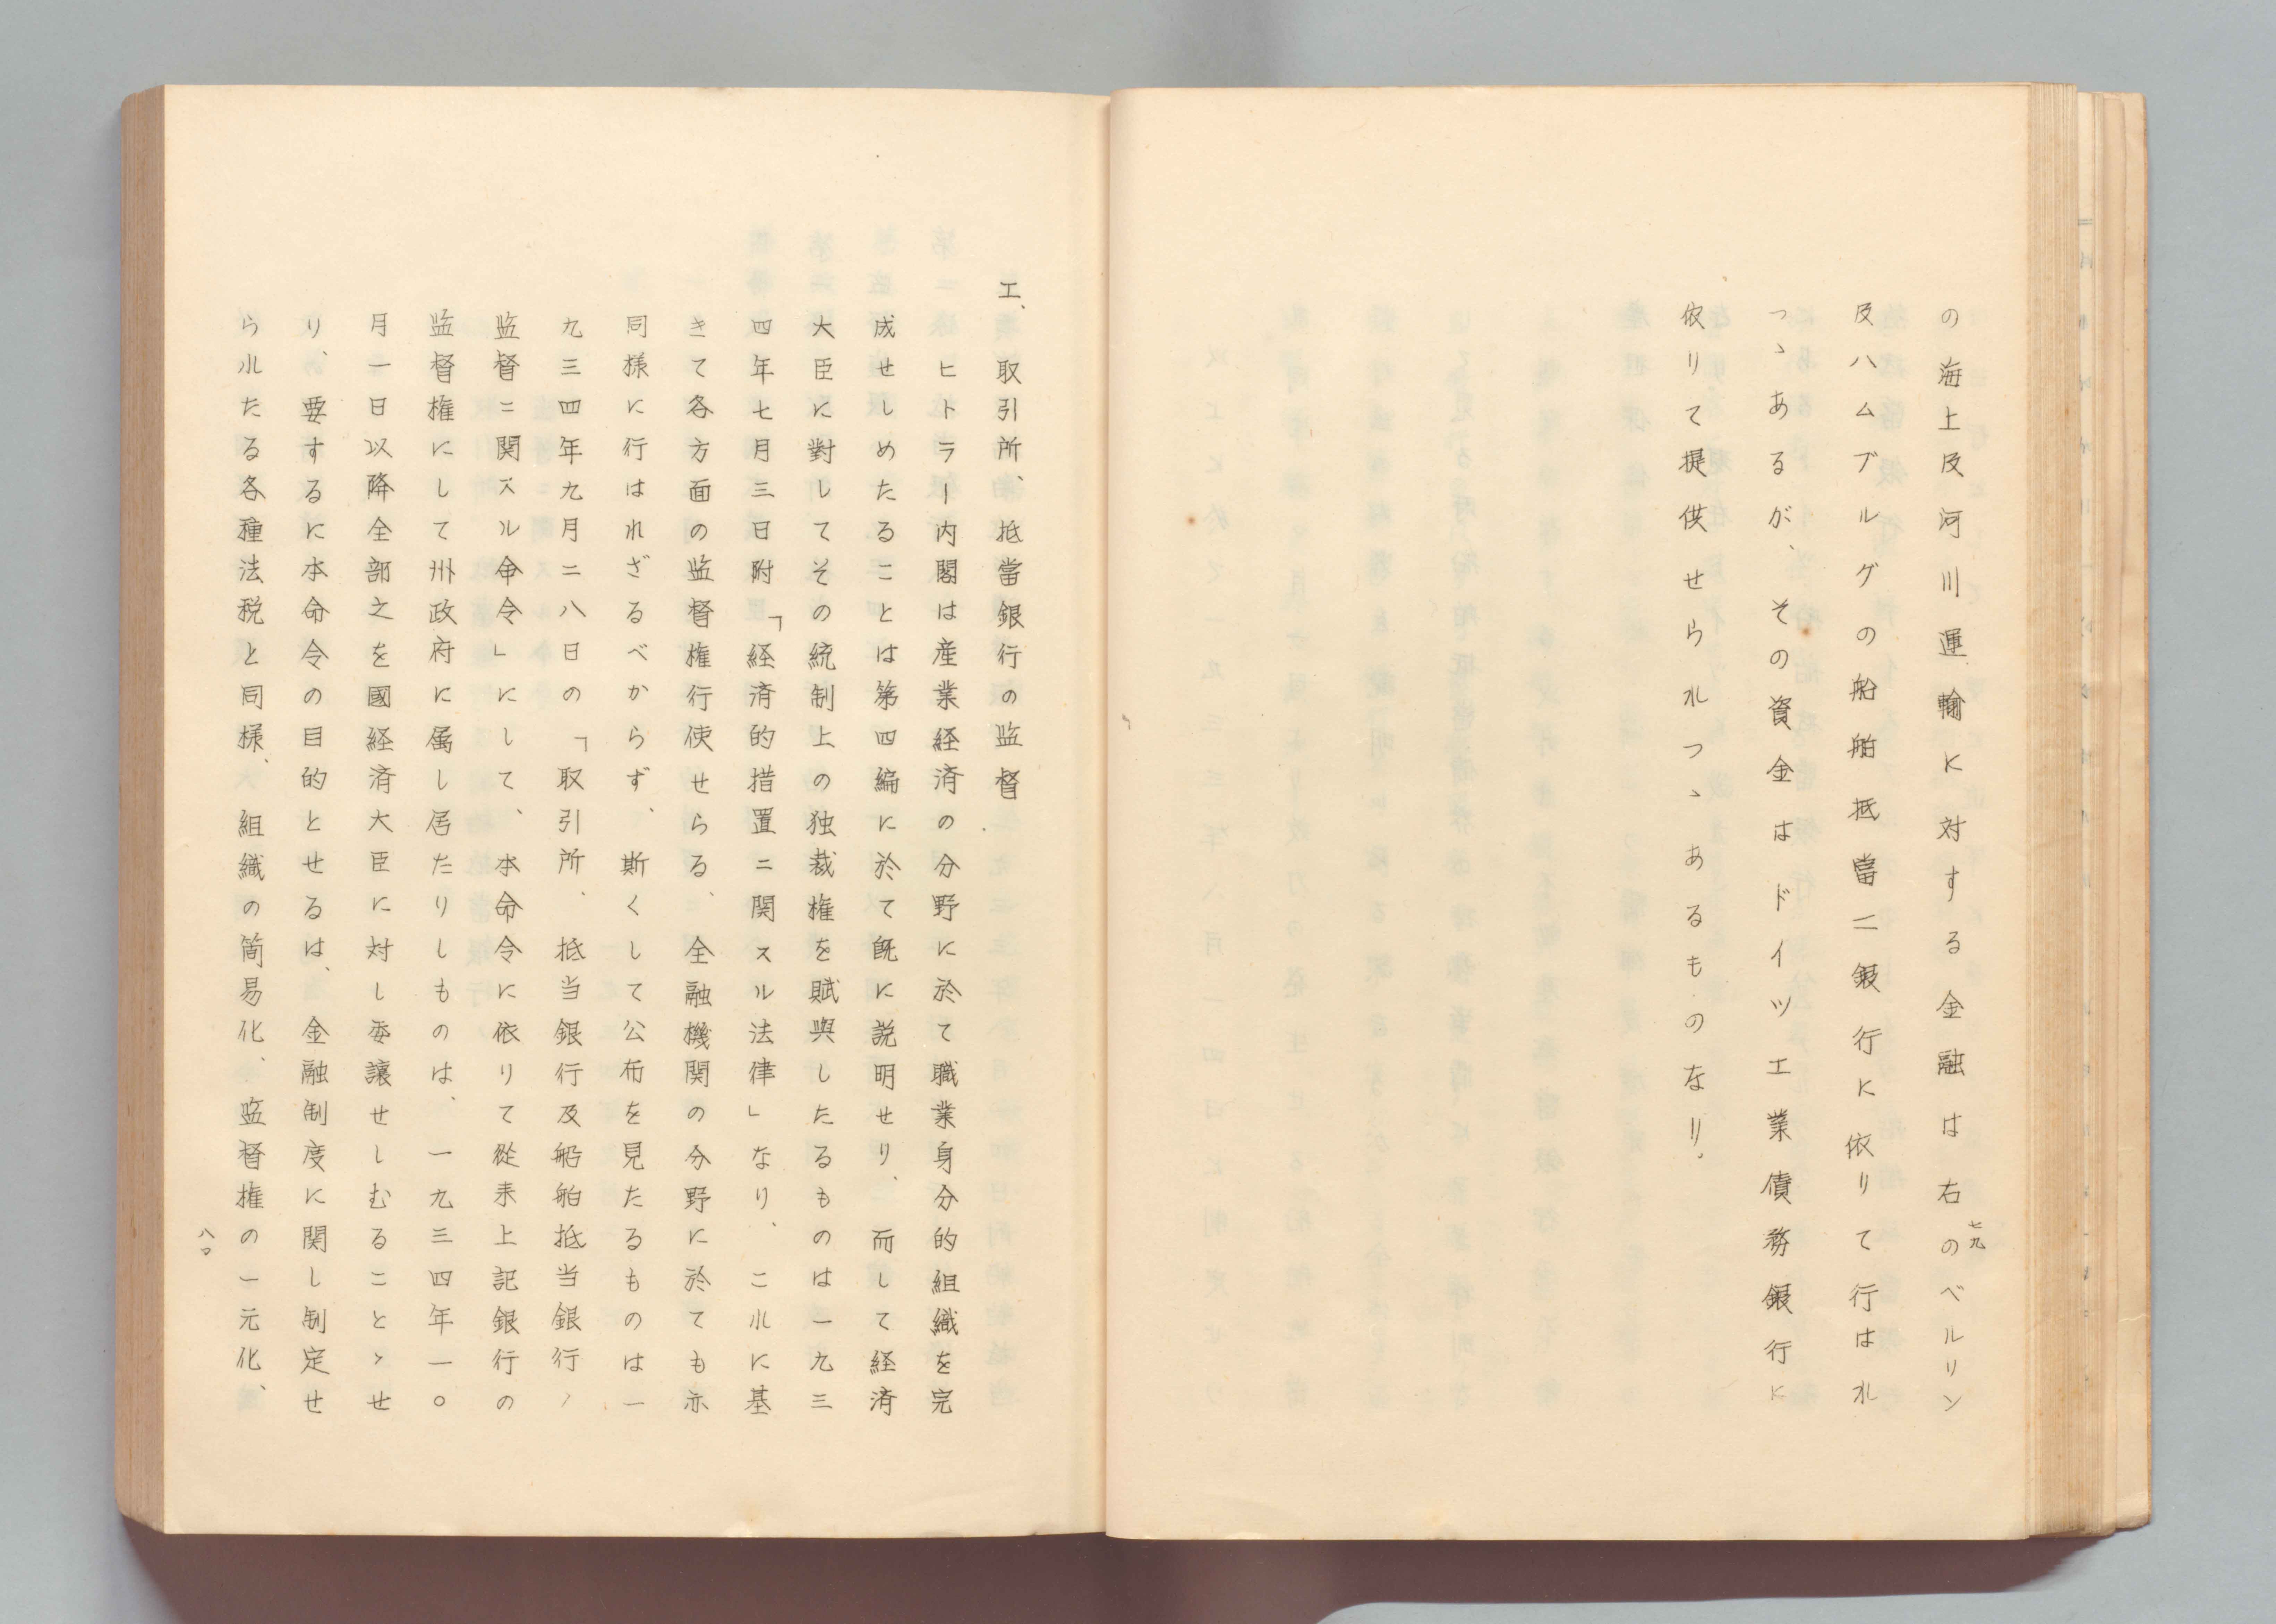 の海上及河川運輸に対する金融は右のベルリン
及ハムブルグの船舶抵當二銀行に依りて行はれ
つゝあるが、その資金はドイツ工業債務銀行に
依りて提供せられつゝあるものなり。
七九
工、取引所、抵當銀行の監督
ヒトラー内閣は産業経済の分野に於て職業身分的組織を完
成せしめたることは第四編に於て既に説明せり、而して経済
大臣に對してその統制上の独裁権を賦與したるものは一九三
四年七月三日附「経済的措置ニ関スル法律」なり、これに基
きて各方面の監督権行使せらる、全融機関の分野に於ても亦
同様に行はれざるべからず、斯くして公布を見たるものは一
九三四年九月二八日の「取引所、抵当銀行及船舶抵当銀行ノ
監督ニ関スル命令」にして、本命令に依りて從来上記銀行の
監督権にして州政府に属し居たりしものは、一九三四年一〇
月一日以降全部之を國経済大臣に対し委譲せしむることゝせ
り、要するに本命令の目的とせるは、金融制度に関し制定せ
られたる各種法税と同様、組織の簡易化、監督権の一元化、
八〇